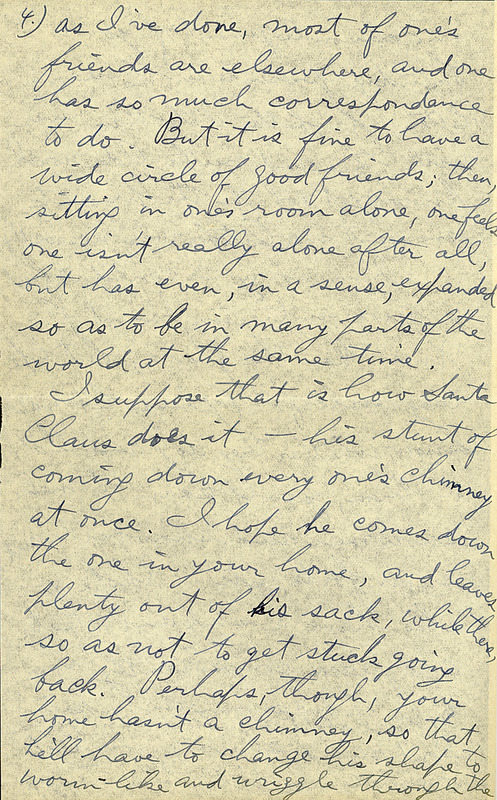 4.) as I've done, most of one's
friends are elsewhere, and one
has so much correspondance
to do. But it is fine to have a
wide circle of good friends; then,
sitting in one's room alone, one feels
one isn't really alone after all,
but has even, in a sense, expanded
so as to be in many parts of the
world at the same time.
I suppose that is how Santa
Claus does it — his stunt of
coming down every one's chimney
at once. I hope he comes down
the one in your home, and leaves
plenty out of his sack, while there,
so as not to get stuck going
back. Perhaps, though, your
home hasn't a chimney, so that
he'll have to change his shape to
worm-like and wriggle through the